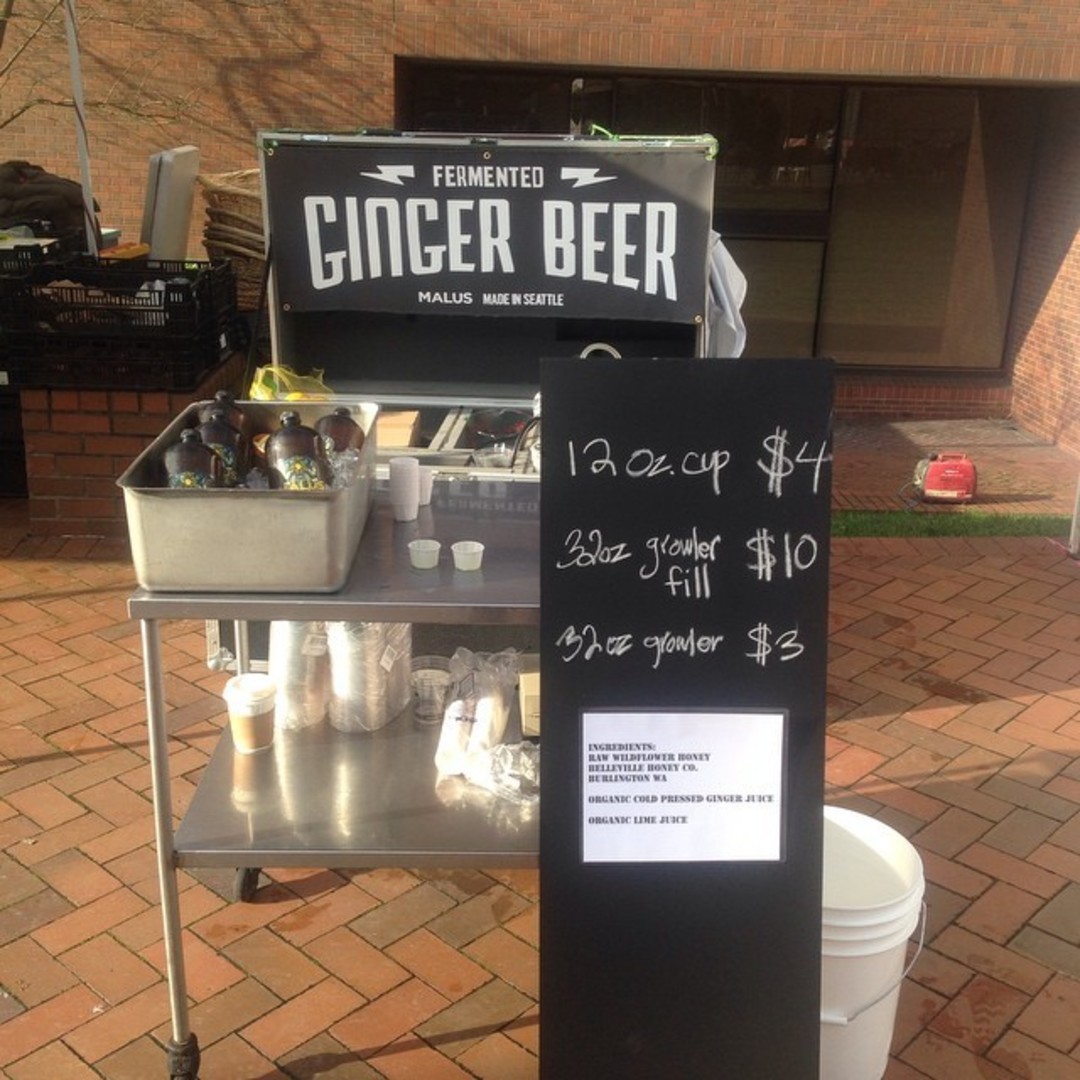 FERMENTED
GINGER BEER
MALUS MADE IN SEATTLE
12 oz. cup $4
32oz growler $10
fill
32 oz growler $3
INGREDIENTS:
RAW WILDFLOWER HONEY
BELLEVILLE HONEY CO.
BURLINGTON WA
ORGANIC COLD PRESSED GINGER JUICE
ORGANIC LIME JUICE